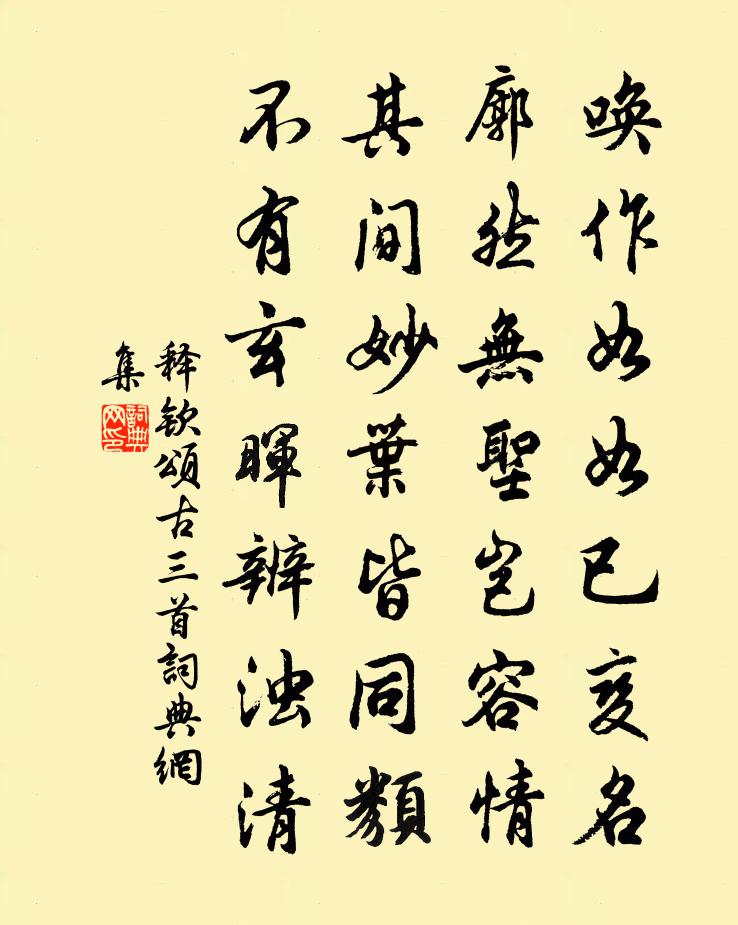 唤作如如已变名
廓然無聖豈容情
其间妙葉皆同類
不有玄暉辨浊清
释钦頌古三首詞典網
集
詞典
网印